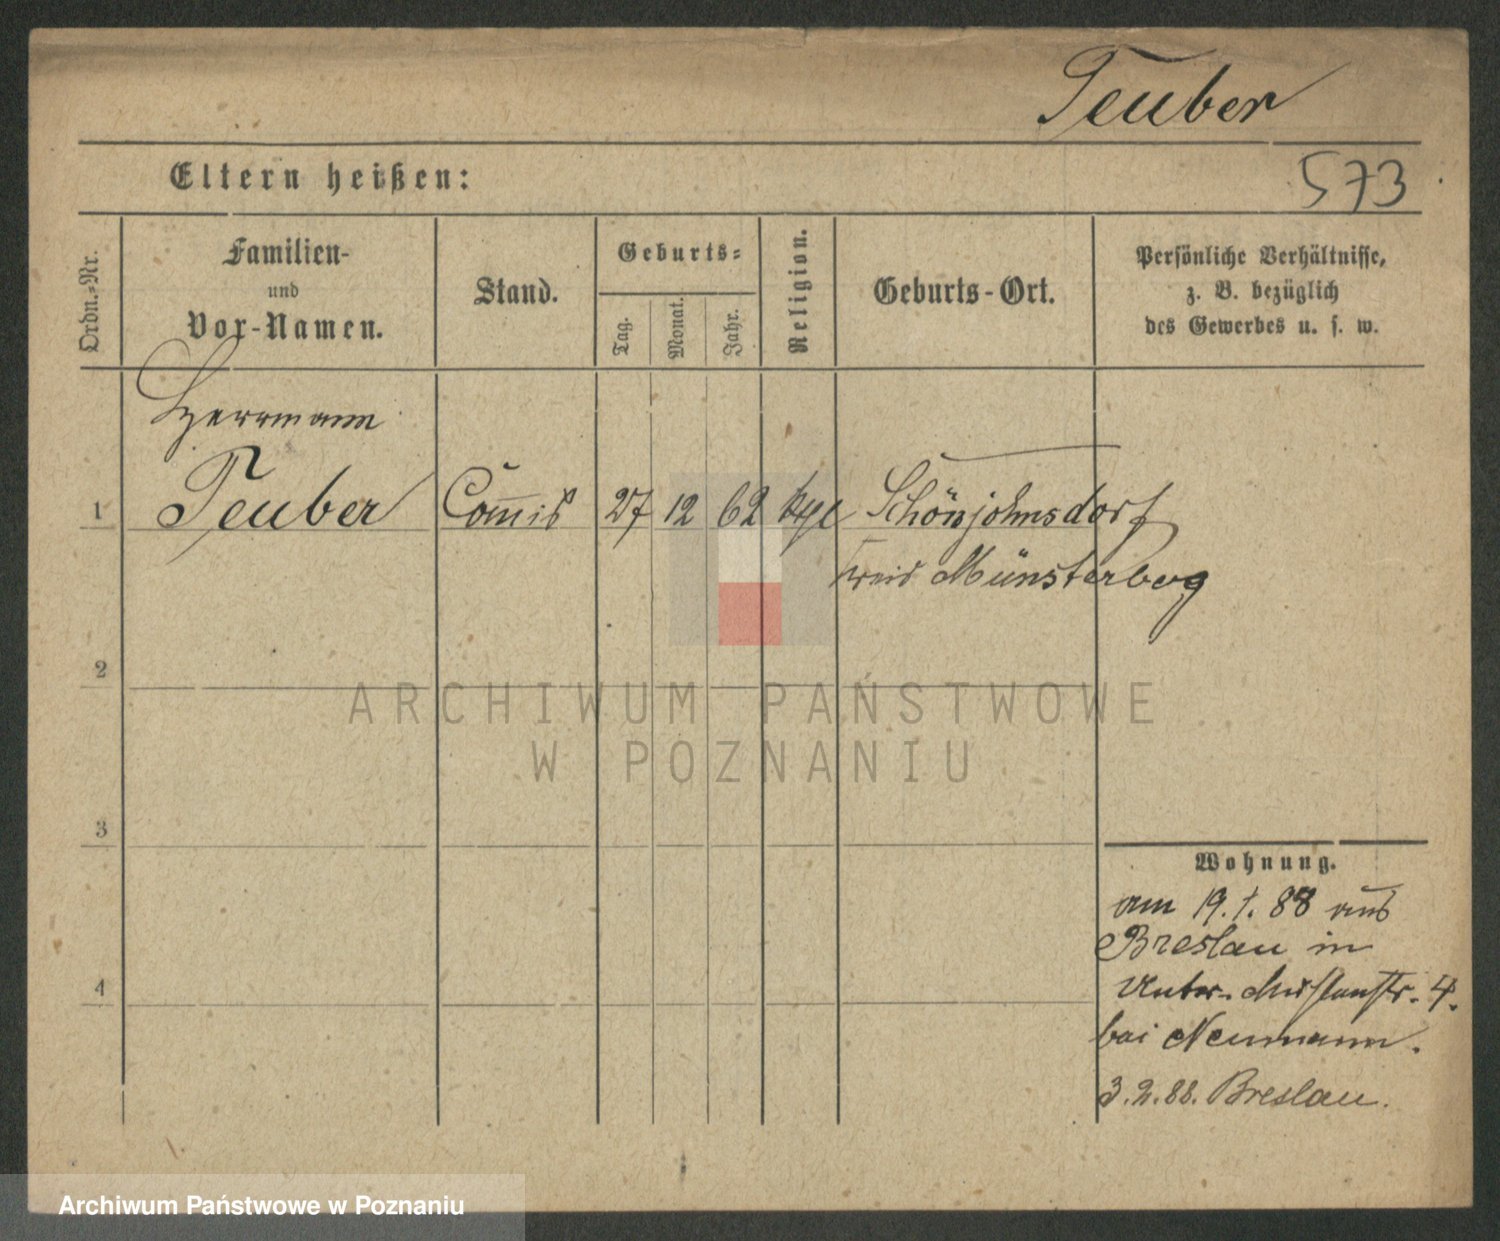 Teuber
573
Eltern heißen:
Ordn.-Nr.
Familien-
und
Vor-Namen.
Stand.
Geburts-
Tag.
Monat.
Jahr.
Religion.
Geburts-Ort.
Persönliche Verhältnisse,
z. B. bezüglich
des Gewerbes u. s. w.
Herrmann
1 Teuber Commis 27 12 62 Schönjohnsdorf
Kreis Münsterberg
2
ARCHIWUM PAŃSTWOWE
W POZNANIU
3
Wohnung.
am 19.1.88 aus
Breslau in
4
Unter- 4.
bei Neumann.
3.2.88. Breslau.
Archiwum Państwowe w Poznaniu